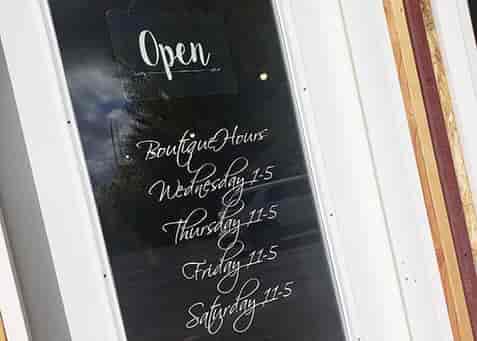 Open
Boutique Hours
Wednesday 1-5
Thursday 11-5
Friday 11-5
Saturday 11-5